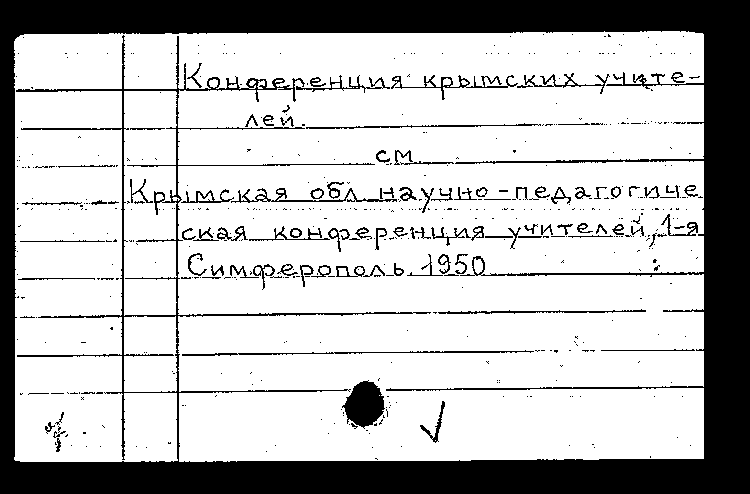 Конференция крымских учите-
лей.
см
Крымская обл научно-педагогиче
ская конференция учителей, 1-я
Симферополь. 1950